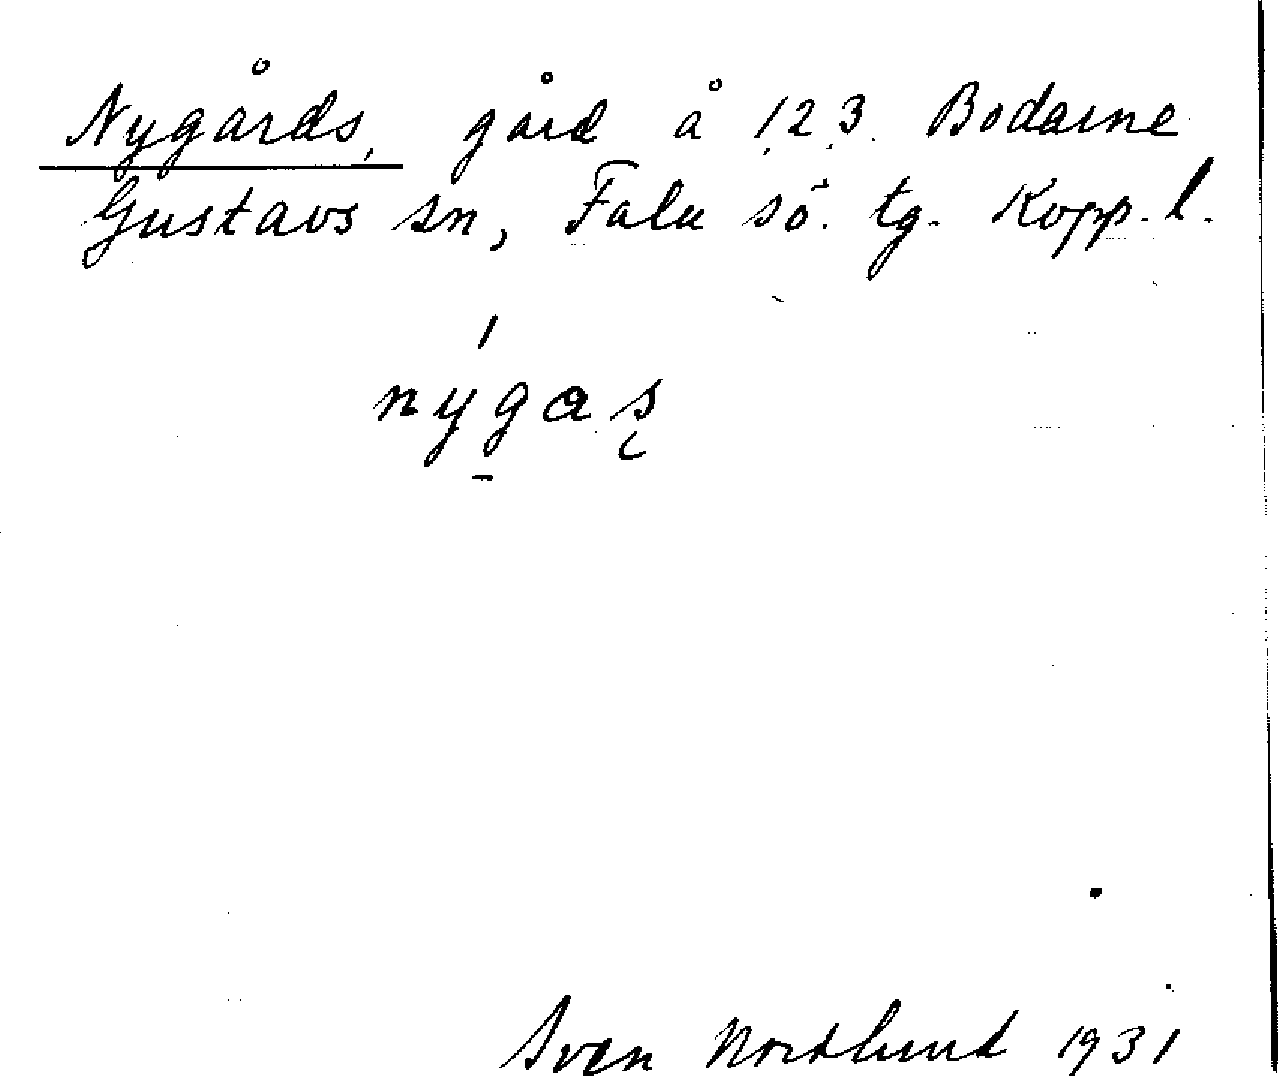 Nygårds, gård å 1, 2, 3. Bodarne
Gustavs sn, Falu sö. tg. Kopp. l.
nýgas
Sven Nordlund 1931